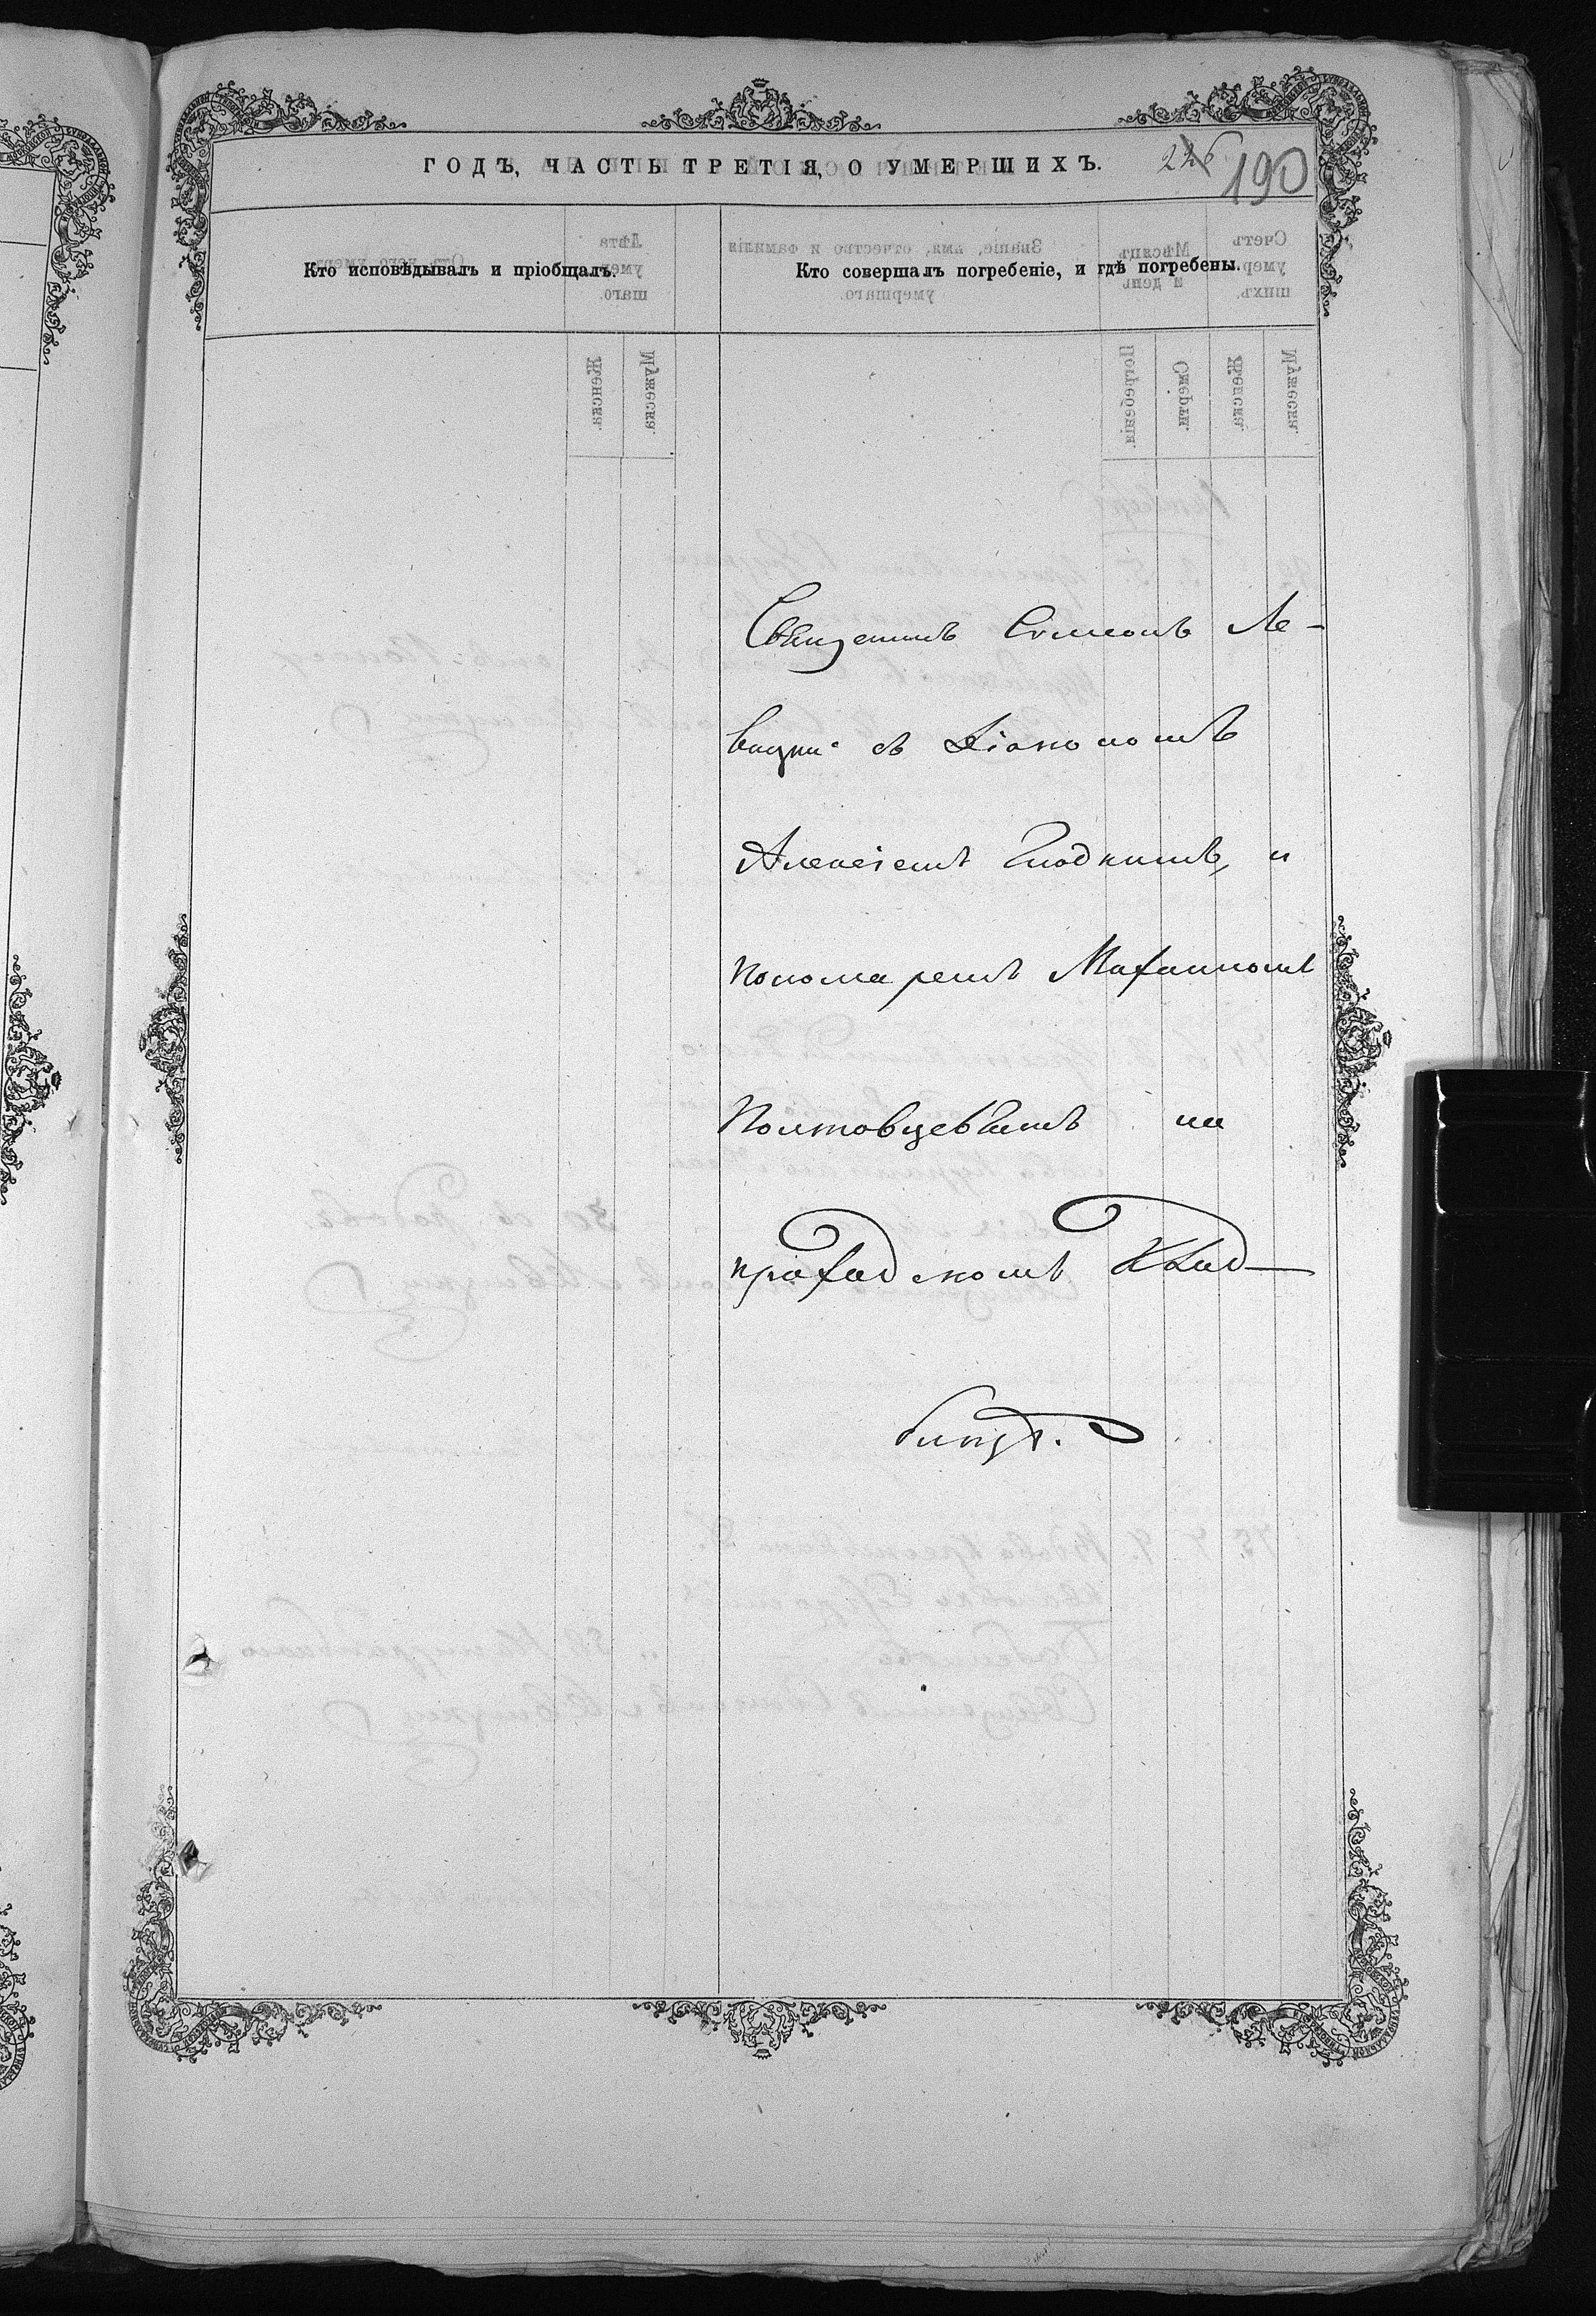 ГОДЪ, ЧАСТЬ ТРЕТІЯ, О УМЕРШИХЪ.
226 190
Кто исповѣдывалъ и пріобщалъ.
Кто совершалъ погребеніе, и гдѣ погребены.
Священникъ Симеонъ Ле-
вицкій съ Діакономъ
Алексіемъ и
пономаремъ
на
приходскомъ Клад-
бищѣ.